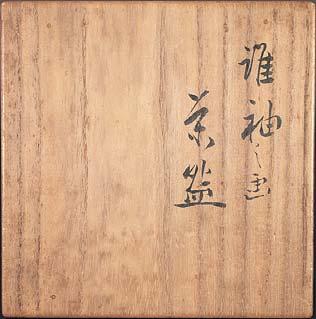 誰袖之画
茶盌